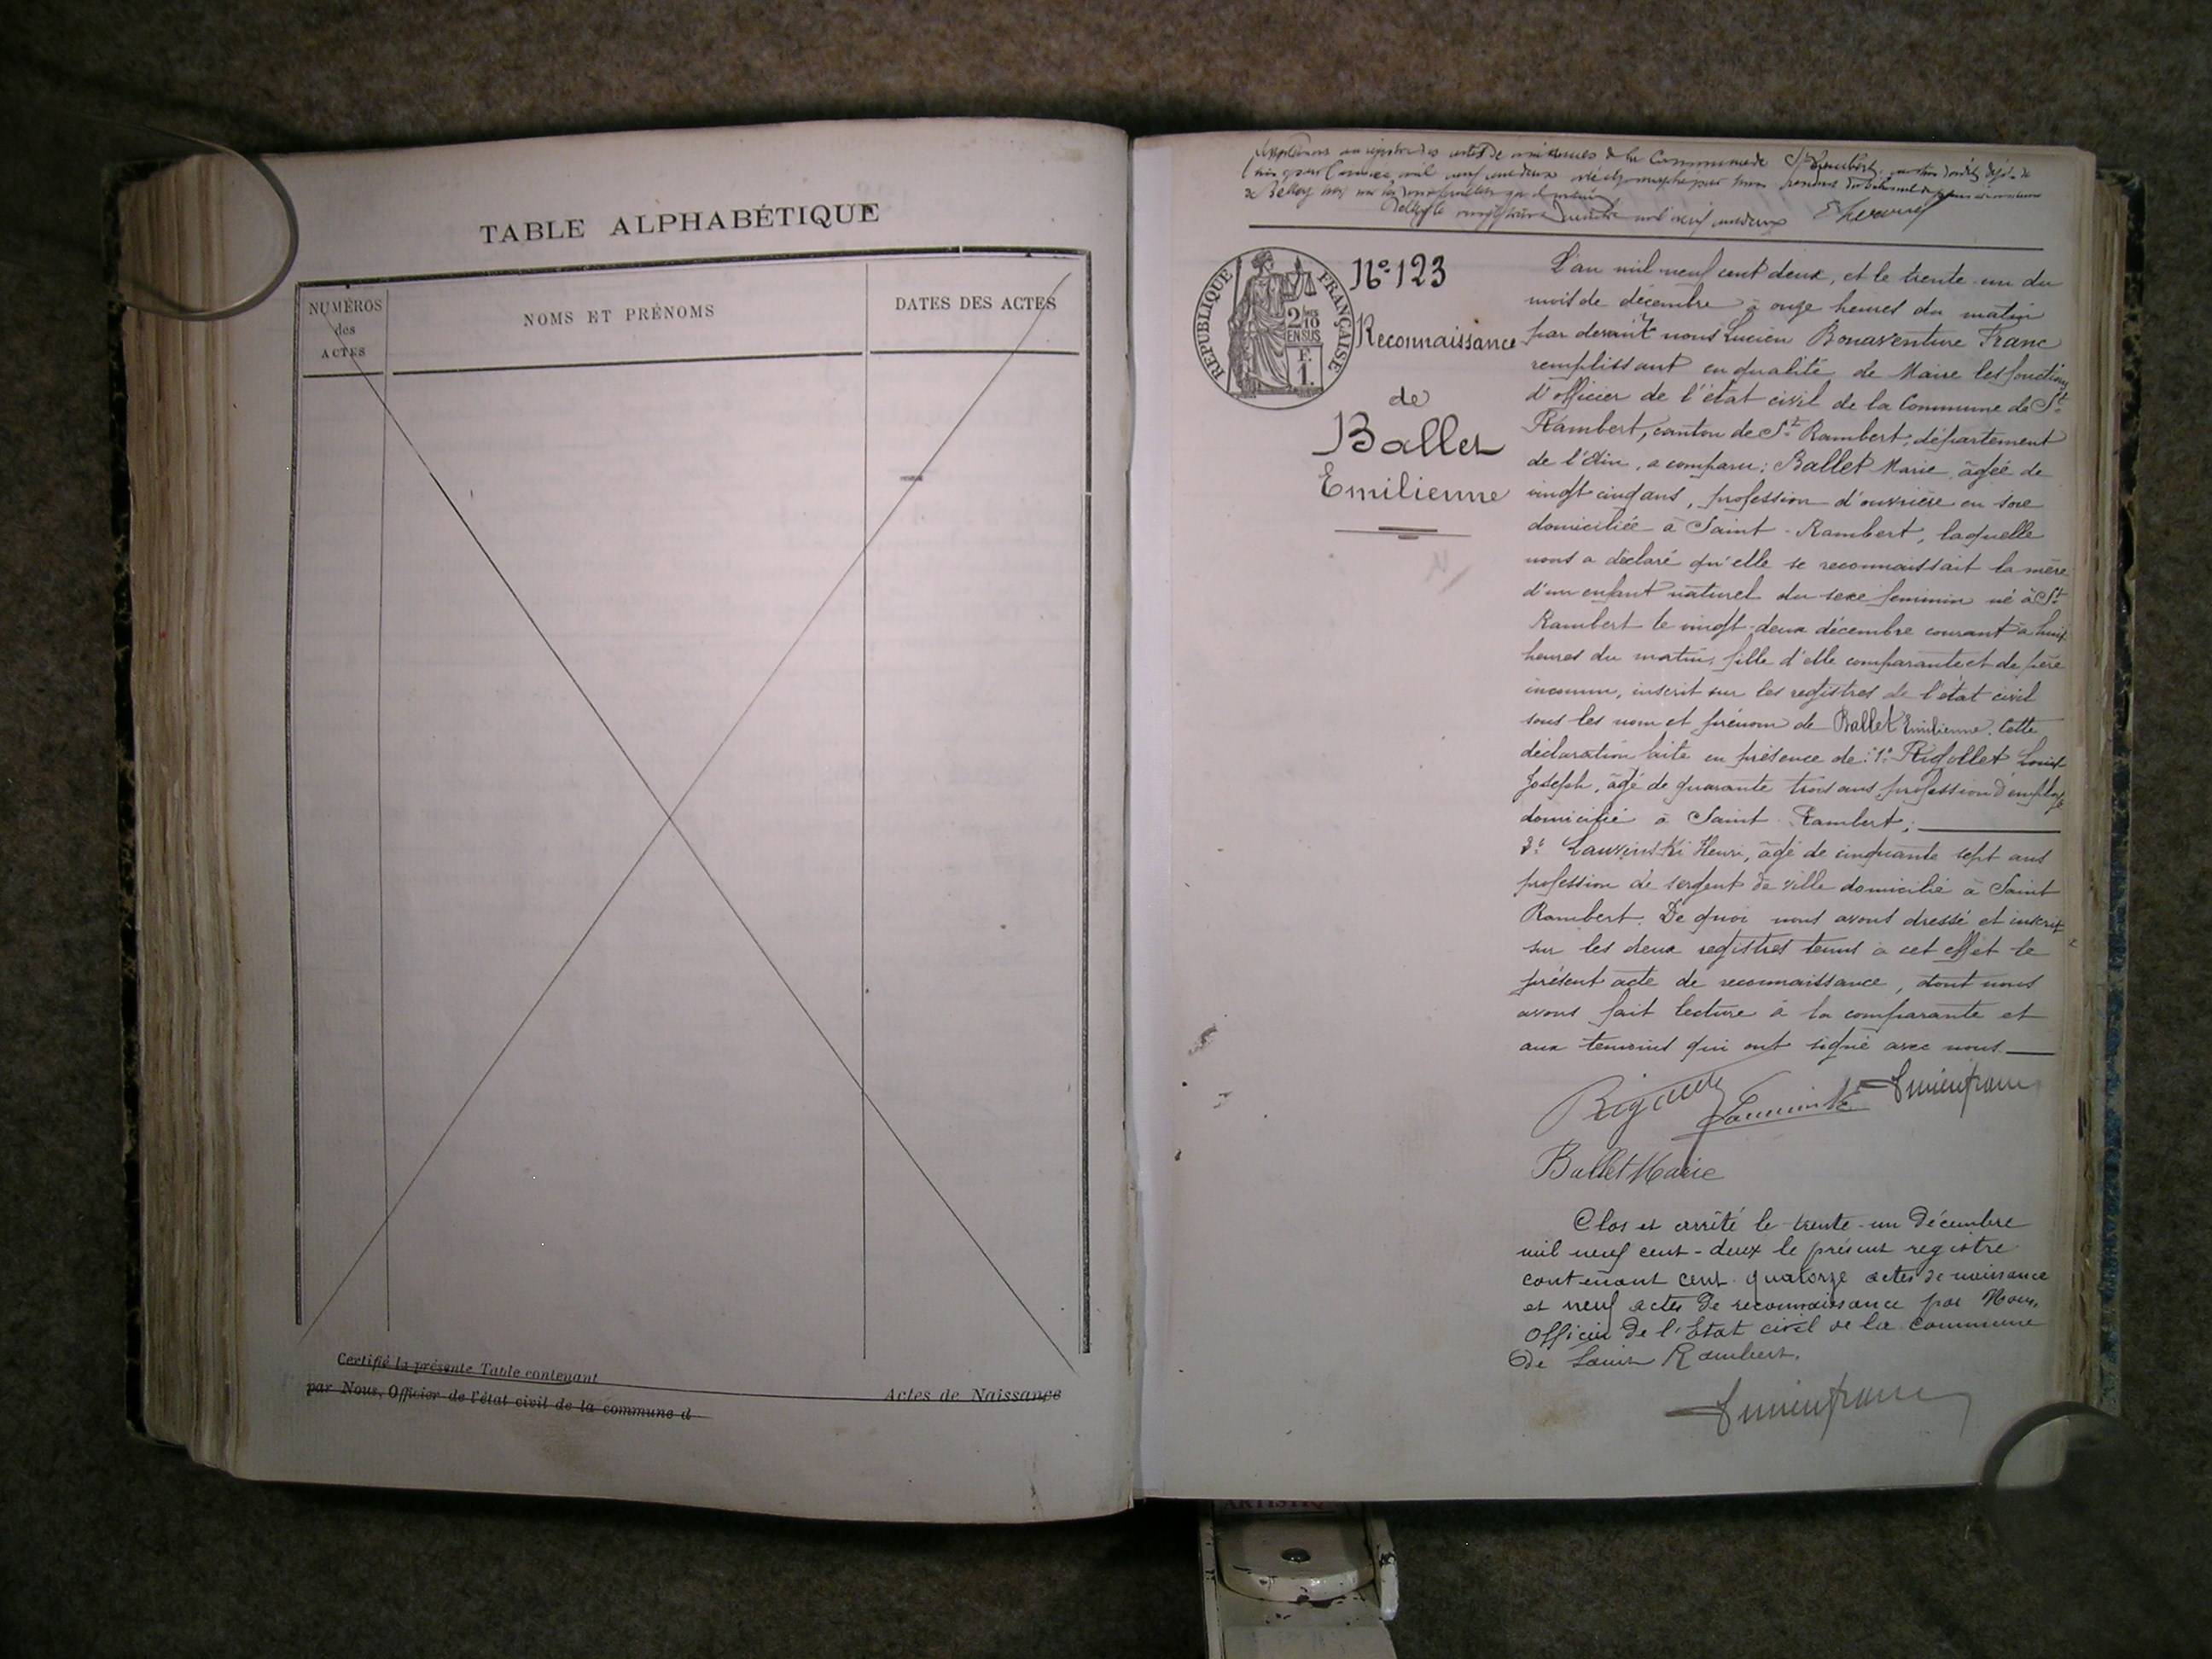 TABLE ALPHABÉTIQUE
NUMÉROS
des
ACTES
NOMS ET PRÉNOMS
DATES DES ACTES
Certifié la présente Table contenant
Actes de Naissance
par Nous, Officier de l'état civil de la commune d
Supplément au registre des actes de naissances de la Commune de St Rambert
pour l'année mil neuf cent deux
de Belley
Belley le décembre mil neuf cent deux
RÉPUBLIQUE FRANÇAISE
2/10
EN SUS
F.
1.
Nº 123
Reconnaissance
de
Ballet
Emilienne
L'an mil neuf cent deux, et le trente-un du
mois de décembre à onze heures du matin
par devant nous Lucien Bonaventure Franc
remplissant en qualité de Maire les fonctions
d'officier de l'état civil de la Commune de St
Rambert, canton de St Rambert, département
de l'Ain, a comparu: Ballet Marie, âgée de
vingt cinq ans, profession d'ouvrière en soie
domiciliée à Saint-Rambert, laquelle
nous a déclaré qu'elle se reconnaissait la mère
d'un enfant naturel du sexe feminin né à St
Rambert le vingt-deux décembre courant à huit
heures du matin, fille d'elle comparante et de père
inconnu, inscrit sur les registres de l'état civil
sous les nom et prénom de Ballet Emilienne. Cette
déclaration faite en présence de: 1º Rigollet Louis
Joseph, âgé de quarante trois ans, profession d'employé
domicilié à Saint Rambert;
2º Henri, âgé de cinquante sept ans
profession de sergent de ville domicilié à Saint
Rambert. De quoi nous avons dressé et inscrit
sur les deux registres tenus à cet effet le
présent acte de reconnaissance, dont nous
avons fait lecture à la comparante et
aux temoins qui ont signé avec nous.
Ballet Marie
Clos et arrêté le trente-un Décembre
mil neuf cent-deux le présent registre
contenant cent quatorze actes de naissance
et neuf actes de reconnaissance par Nous,
Officier de l'Etat civil de la commune
de Saint Rambert.